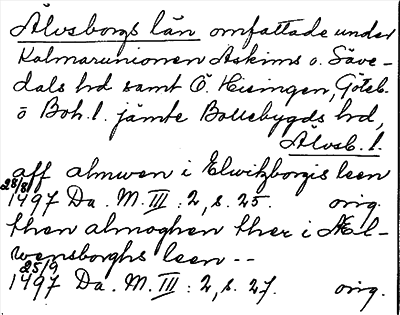 Älvsborgs län omfattade under
Kalmarunionen Askims o. Säve-
dals hd samt Ö. Hisingen, Göteb.
o Boh. l. jämte Bollebygds hd,
Älvsb. l.
aff almwen i Elwitzborgis leen
28/8
1497 Da. M. III : 2, s. 25. orig.
then almoghen ther i Æl-
wensborghs leen --
25/9
1497 Da. M. III : 2, s. 27. orig.